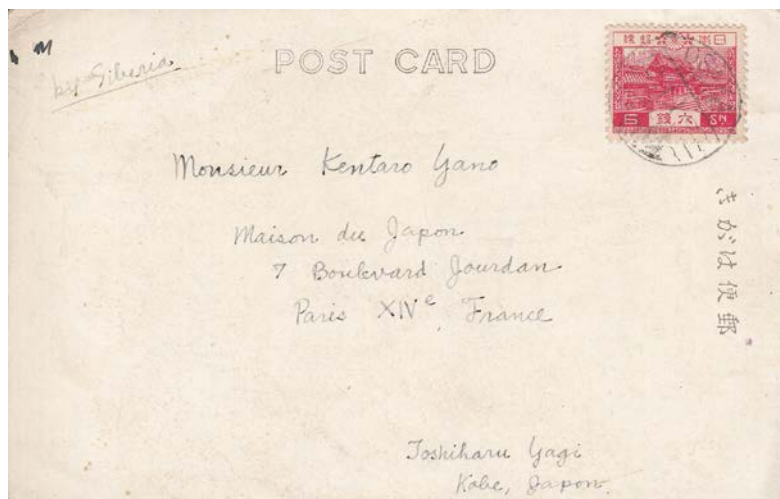 by Siberia
POST CARD
日本六六郵便
6 六銭 SN
Monsieur Kentaro Yano
Maison du Japon
7 Boulevard Jourdan
Paris XIVe, France
きがは便郵
Toshiharu Yagi
Kobe, Japon